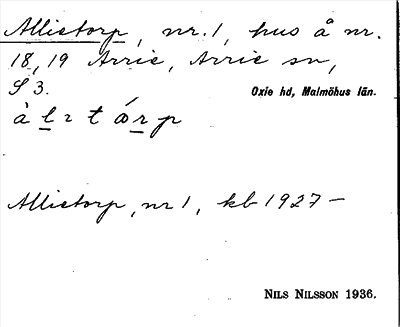 Allietorp, nr. 1, hus å nr.
18, 19 Arrie, Arrie sn,
S 3. Oxie hd, Malmöhus län.
Allietorp, nr 1, kb 1927 –
NILS NILSSON 1936.